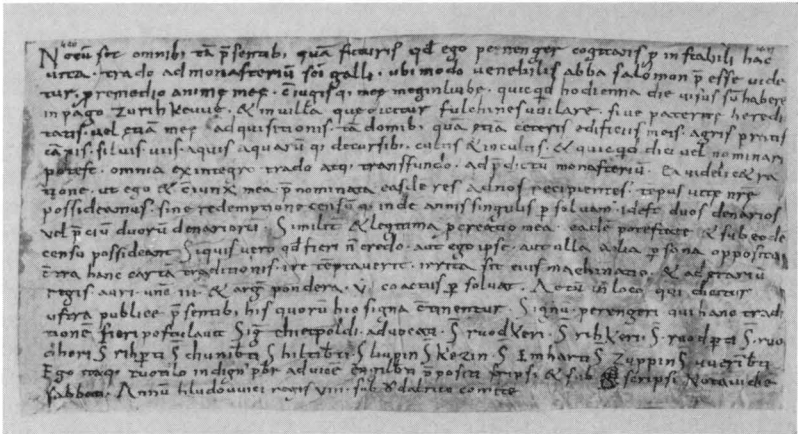 Notũ sit omnibꝰ tã p̃sentibꝰ quã futuris qđ ego perenger cogitans ꝓ instabili hac
uita · trado ad monasteriũ sc̃i galli · ubi modo uenebilis abba salomon p̃esse uide
tur · ꝓ remedio animę meę · c̃iugis qꝫ meę meginlube · quicqđ hodierna die uisus sũ habere
in pago zurihkeuue · & in uilla que dicitur fulchinesuuilare · siue paternę heredi
tatis · uel etiã meę adquisitionis · tã domibꝰ quã etiã ceteris edificiis meis · agris pratis
cãpis · siluis uiis · aquis aquarũ qꝫ decursibꝰ · cultis & incultis · & quicqđ dici uel nominari
potest · omnia ex integro trado atqꝫ transfundo · ad p̃dictũ monasteriũ · Ea uidelic& ra
tione · ut ego & c̃iunx mea p̃nominata easdē res ad nos recipientes · tẽpus uitę nr̃ę
possideamus · sine redemptione censũ qꝫ inde annis singulis ꝑsoluam · id est duos denarios
uel p̃ciũ duorũ denariorũ · Similit̃ & legitima ꝓcreatio mea · eadē potestate & sub eodē
censu possideant Si quis uero qđ fieri n̄ credo · aut ego ipse · aut ulla alia ꝑsona opposita
c̃tra hanc cartã traditionis · ire tẽptauerit · irrita sit eius machinatio · & ad erariũ
regis · auri · unc̃ · iii · & arg̃ · pondera · v · coactus ꝑsoluat · Actũ in loco qui dicitur
ustra publice p̃sentibꝰ his quorũ hic signa c̃tinentur · Signũ · perengeri qui hanc tradi
tionē fieri postulauit Sig̃ thietpoldi · aduocati · S̃ ruodkeri · S̃ rihkeri · S̃ ruodpti S̃ · ruo
choeri S̃ rihpti S̃ chunibti S̃ hiltibti · S̃ liupin S̃ kezin · S̃ Einharti S̃ Zuppin S̃ uueribti
Ego itaqꝫ tuotilo indign̄ pbr̃ ad uicē p̃positi scripsi & sub scripsi Notaui diē
sabbati · Annũ hludouuici regis viii · sub adalrico comite